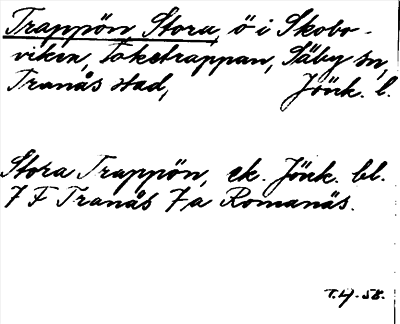 Trappön Stora, ö i Skobo-
viken, Taketrappan, Säby sn,
Tranås stad, Jönk. l.
Stora Trappön, ek. Jönk. bl.
7 F Tranås 7a Romanäs.
T.H. 58.